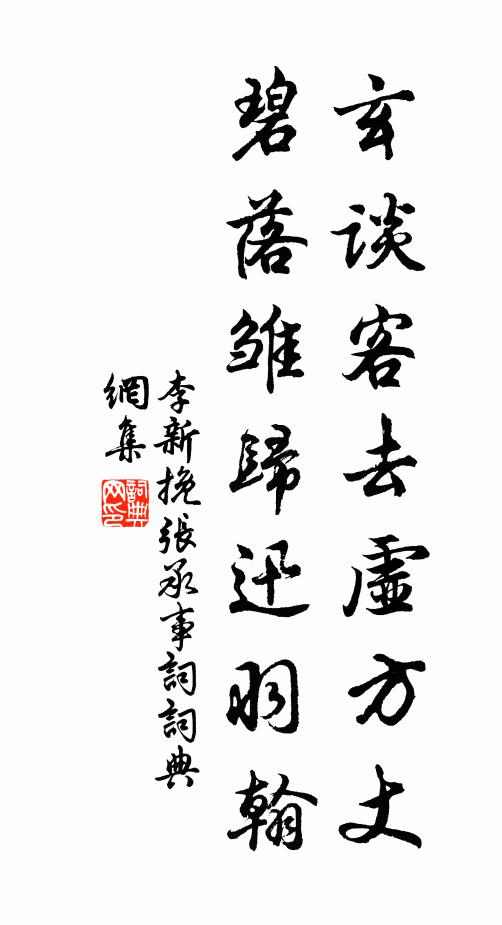 玄談客去虛方丈
碧落雏歸迅羽翰
李新挽張承事詞詞典
網集
詞典
网印